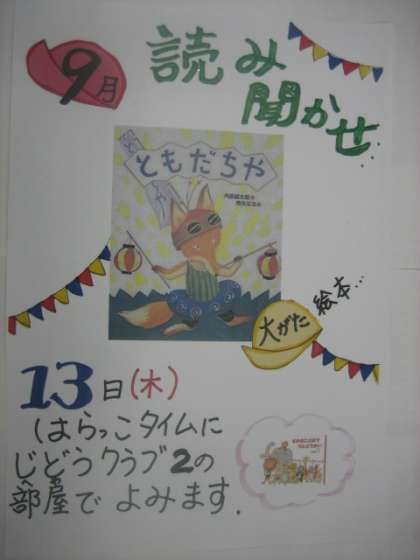 9月
読み
聞かせ
ともだちや
大がた
絵本...
13日(木)
はらっこタイムに
じどうクラブ2の
へや
部屋でよみます.